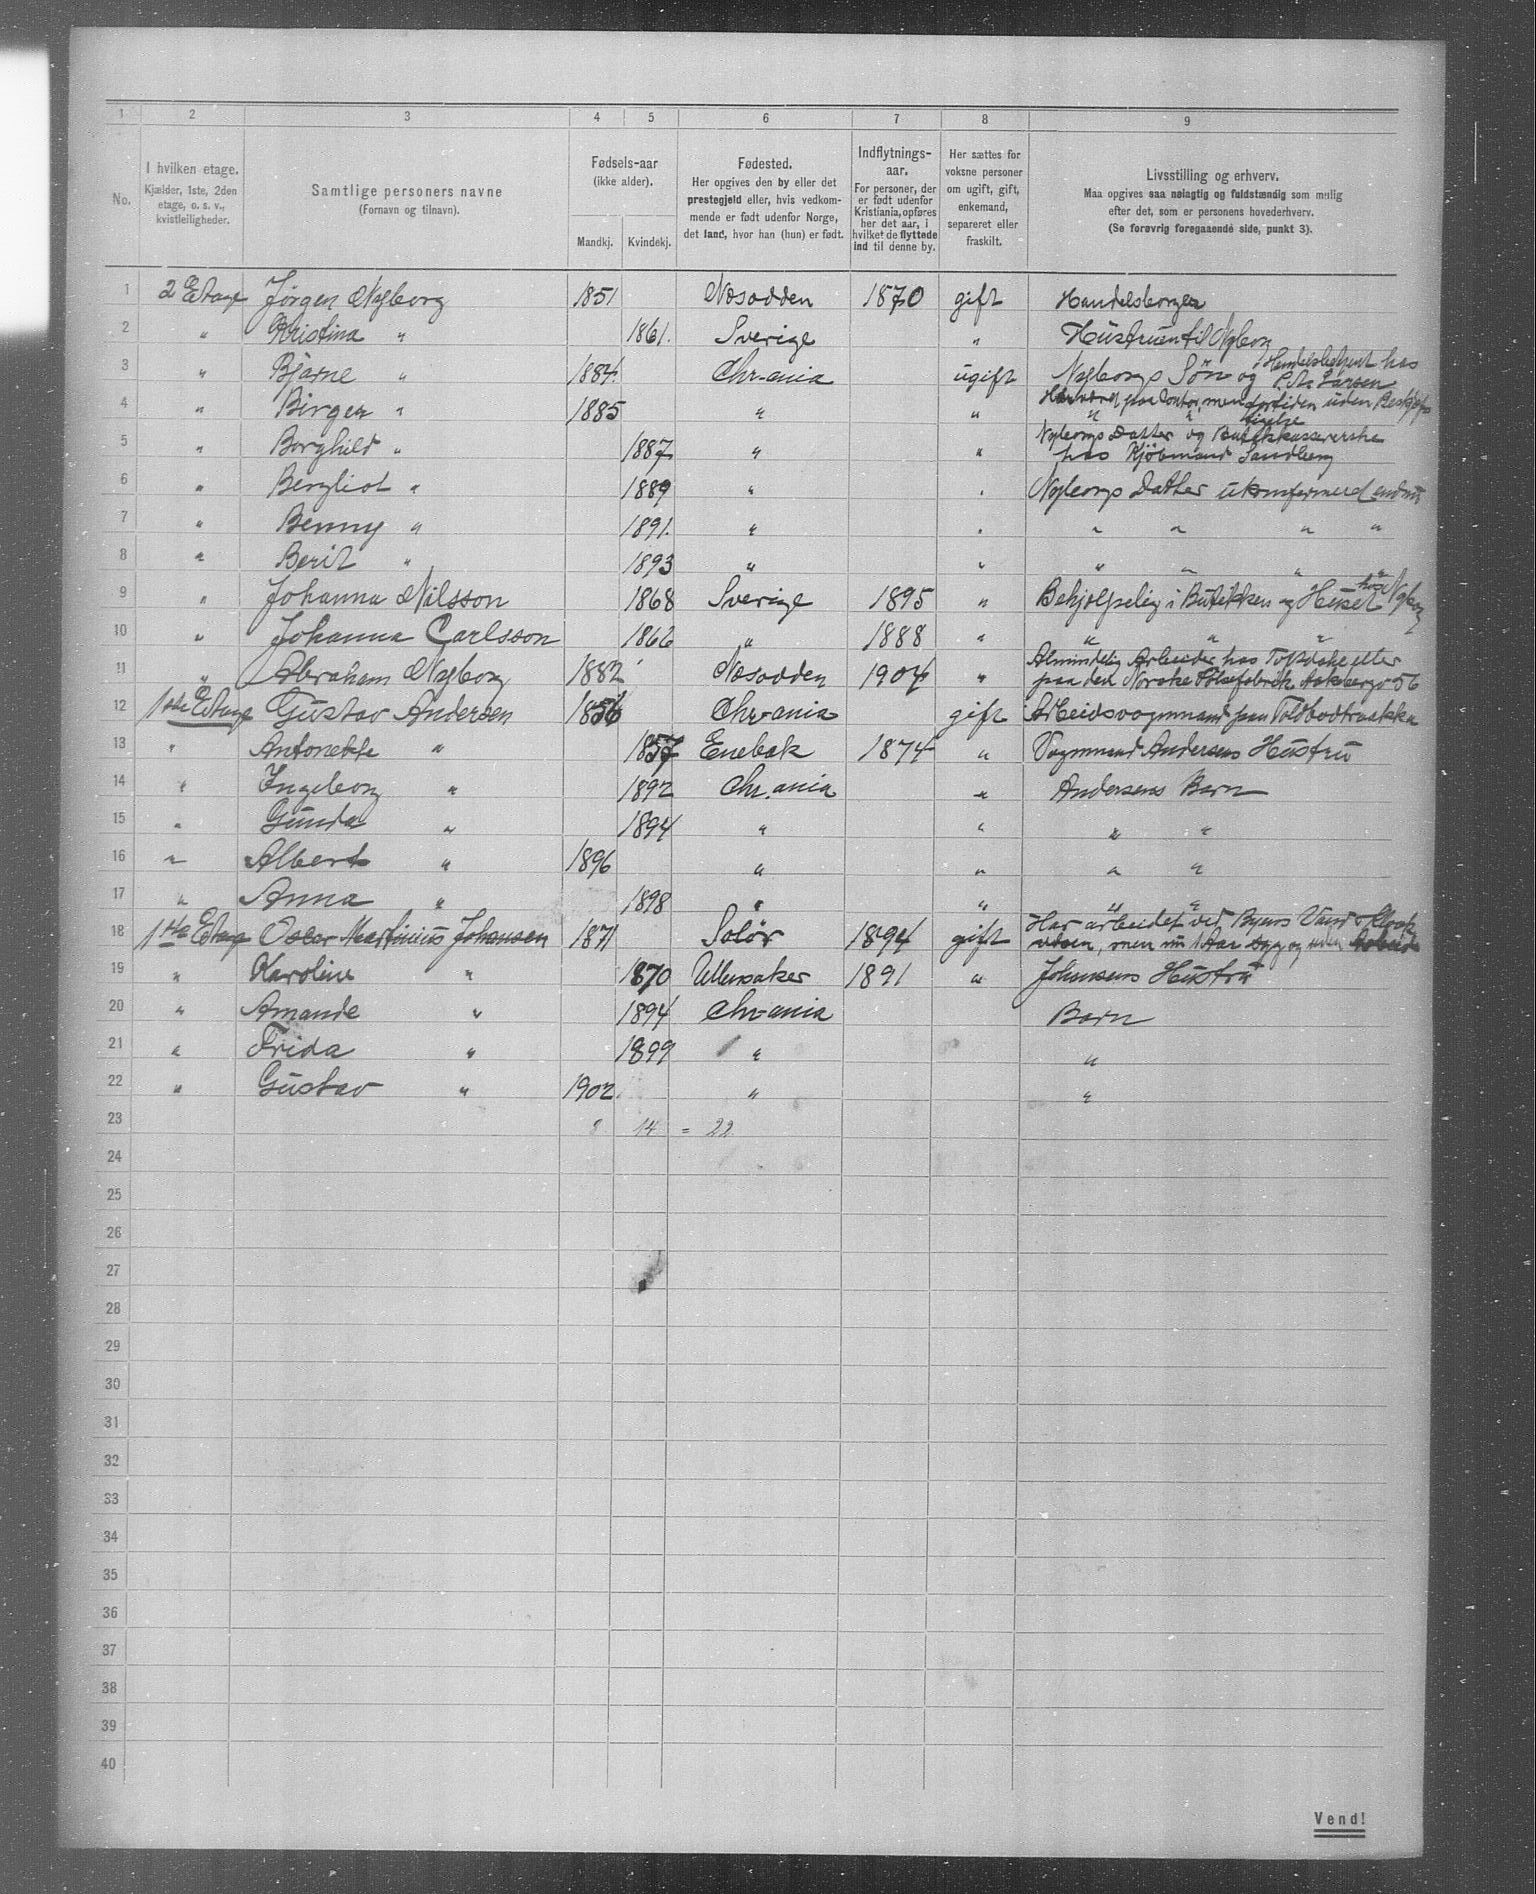 1 2 3 4 5 6 7 8 9
No.
I hvilken etage.
Kjælder, 1ste, 2den
etage, o. s. v.,
kvistleiligheder.
Samtlige personers navne
(Fornavn og tilnavn).
Fødsels-aar
(ikke alder).
Mandkj. Kvindekj.
Fødested.
Her opgives den by eller det
prestegjeld eller, hvis vedkom-
mende er født udenfor Norge,
det land, hvor han (hun) er født.
Indflytnings-
aar.
For personer, der
er født udenfor
Kristiania, opføres
her det aar, i
hvilket de flyttede
ind til denne by.
Her sættes for
voksne personer
om ugift, gift,
enkemand,
separeret eller
fraskilt.
Livsstilling og erhverv.
Maa opgives saa nøiagtig og fuldstændig som mulig
efter det, som er personens hovederhverv.
(Se forøvrig foregaaende side, punkt 3).
1 2 Etage Jørgen Nyborg 1851 Næsodden 1870 gift Handelsborger
2 " Kristina " 1861. Sverige " Hustruen til
3 " Bjarne " 1884. Chr-ania ugift Nyborgs Søn og Handelsbetjent hos
Larsen
4 " Birger " 1885 " " paa Contor, men fortiden uden
" "
5 " Borghild " 1887 " " Nyborgs Datter og Butikkassererske
hos Kjøbmand Sandberg
6 " Bergliot " 1889 " " Nyborgs Datter ukonfirmered endnu
7 " Benny " 1891. " " " " " "
8 " Berit " 1893 " " " " " "
9 " Johanna Nilsson 1868 Sverige 1895 " Behjelpelig i Butikken og Huset hos Nyborg
10 " Johanna Carlsson 1866 " 1888 " " " "
11 " Abraham Nyborg 1882 Næsodden 1904 " Almindelig Arbeider hos eller
paa den Norske 56
12 1ste Etage Gustav Andersen 1856 Chr-ania gift Arbeidsvognmand paa
13 " Antonette " 1857 Enebak 1874 " Vognmand Andersens Hustru
14 " Ingeborg " 1892 Chr.ania " Andersens Barn
15 " Gunda " 1894 " " " "
16 " Albert " 1896 " " " "
17 " Anna " 1898 " " " "
18 1ste Etage Oscar Martinius Johansen 1871 Solør 1894 gift Har arbeidet ved Byens Vand & Kloak
væsen, men nu 1 Aar syg og uden Arbeide
19 " Karoline " 1870 Ullensaker 1891 " Johansens Hustru
20 " Amande " 1894 Chr-ania Barn
21 " Frida " 1899 " "
22 " Gustav " 1902. " "
23 8 14 = 22
24
25
26
27
28
29
30
31
32
33
34
35
36
37
38
39
40
Vend!